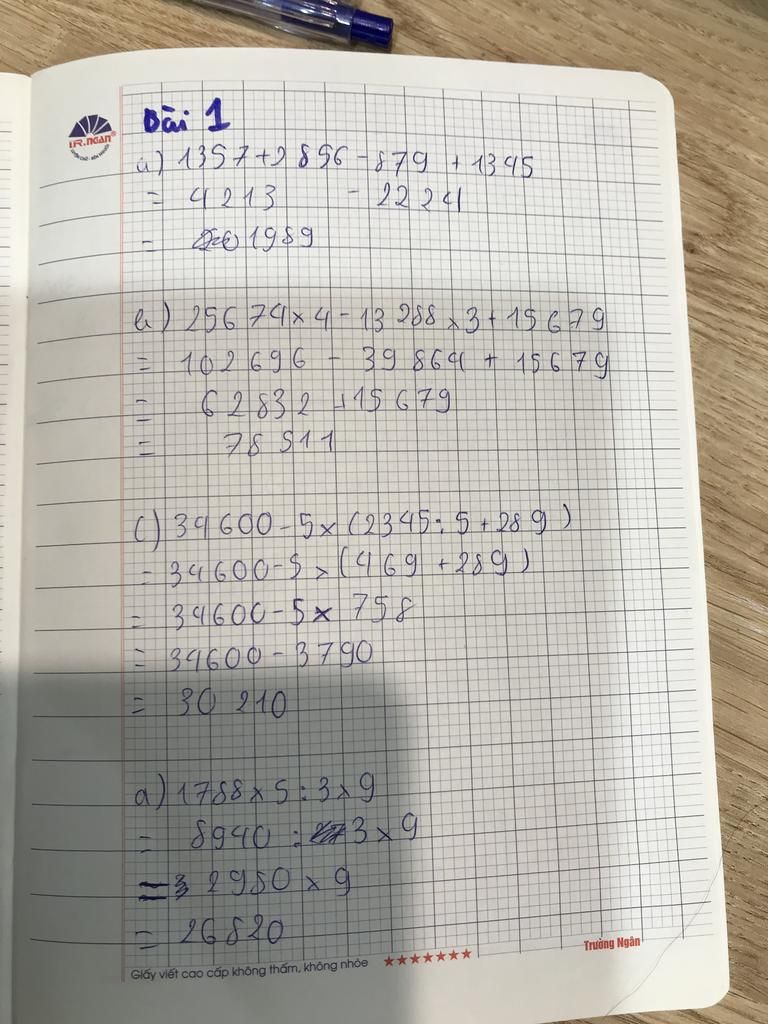 Bài 1
TR.NGAN®
a) 1357 + 2856 - 879 + 1345
= 4213 - 2224
= 1989
b) 25674 x 4 - 13288 x 3 + 15679
= 102696 - 39864 + 15679
= 62832 + 15679
= 78511
c) 34600 - 5 x (2345 : 5 + 289)
= 34600 - 5 x (469 + 289)
= 34600 - 5 x 758
= 34600 - 3790
= 30 210
a) 1788 x 5 : 3 x 9
= 8940 : 3 x 9
= 2980 x 9
= 26820
Trường Ngân
Giấy viết cao cấp không thấm, không nhòe ★★★★★★★